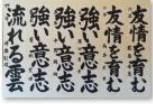 友情を育む
友情を育む
強い意志
強い意志
強い意志
流れる雲